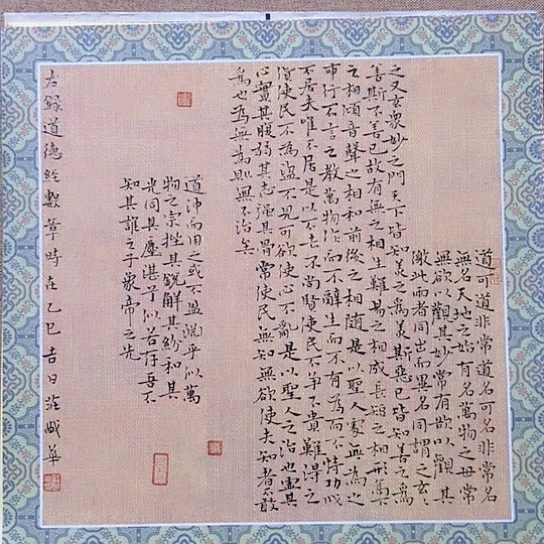 道可道非常道名可名非常名
無名天地之始有名萬物之母常
無欲以觀其妙常有欲以觀其
徼此兩者同出而異名同謂之玄〻
之又玄眾妙之門天下皆知美之為美斯惡已皆知善之為
善斯不善已故有無之相生難易之相成長短之相形高
之相傾音聲之相和前後之相隨是以聖人處無為之
事行不言之教萬物作而不辭生而不有為而不恃功成
不居夫唯不居是以不去不尚賢使民不爭不貴難得之
貨使民不為盜不見可欲使心不亂是以聖人之治也虛其
心實其腹弱其志強其骨常使民無知無欲使夫知者不敢
為也為無為則無不治矣
道沖而用之或不盈淵乎似萬
物之宗挫其銳解其紛和其
光同其塵湛兮似若存吾不
知其誰之子象帝之先
右錄道德經數章時在乙巳吉日華